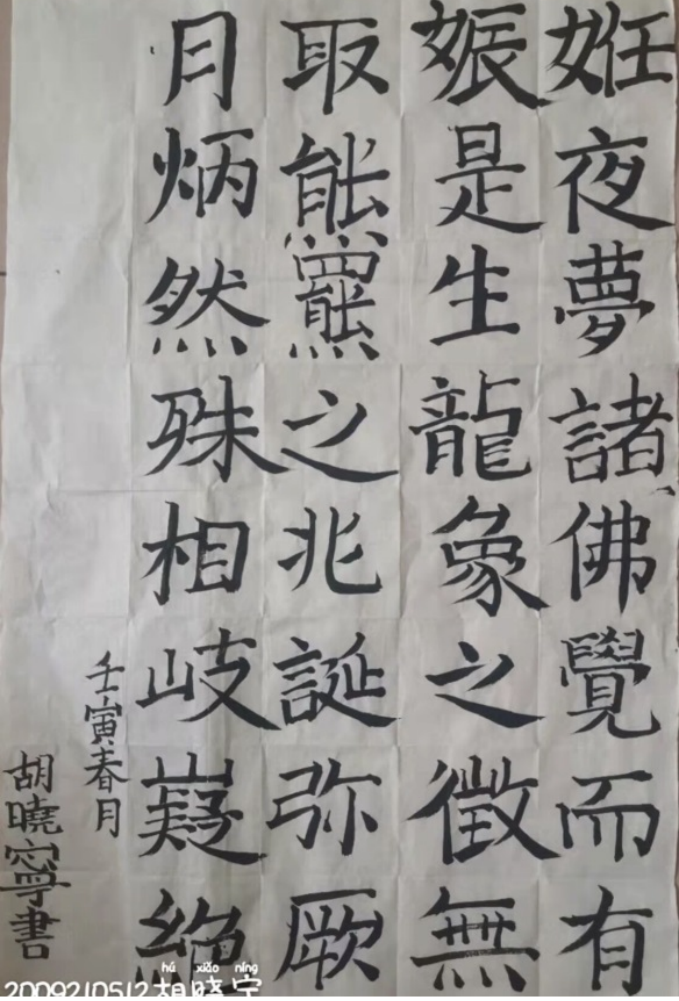 姙夜夢諸佛覺而有
娠是生龍象之徵無
取熊羆之兆誕弥厥
月炳然殊相岐嶷絶
壬寅春月
胡曉寧書
hú xiǎo níng
2009210512胡晓宁